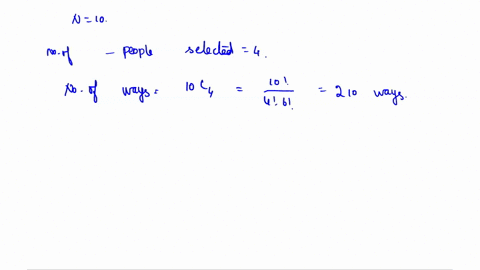 N = 10.
no. of – people selected = 4.
No. of ways = 10C₄ = 10! / 4! 6! = 210 ways.